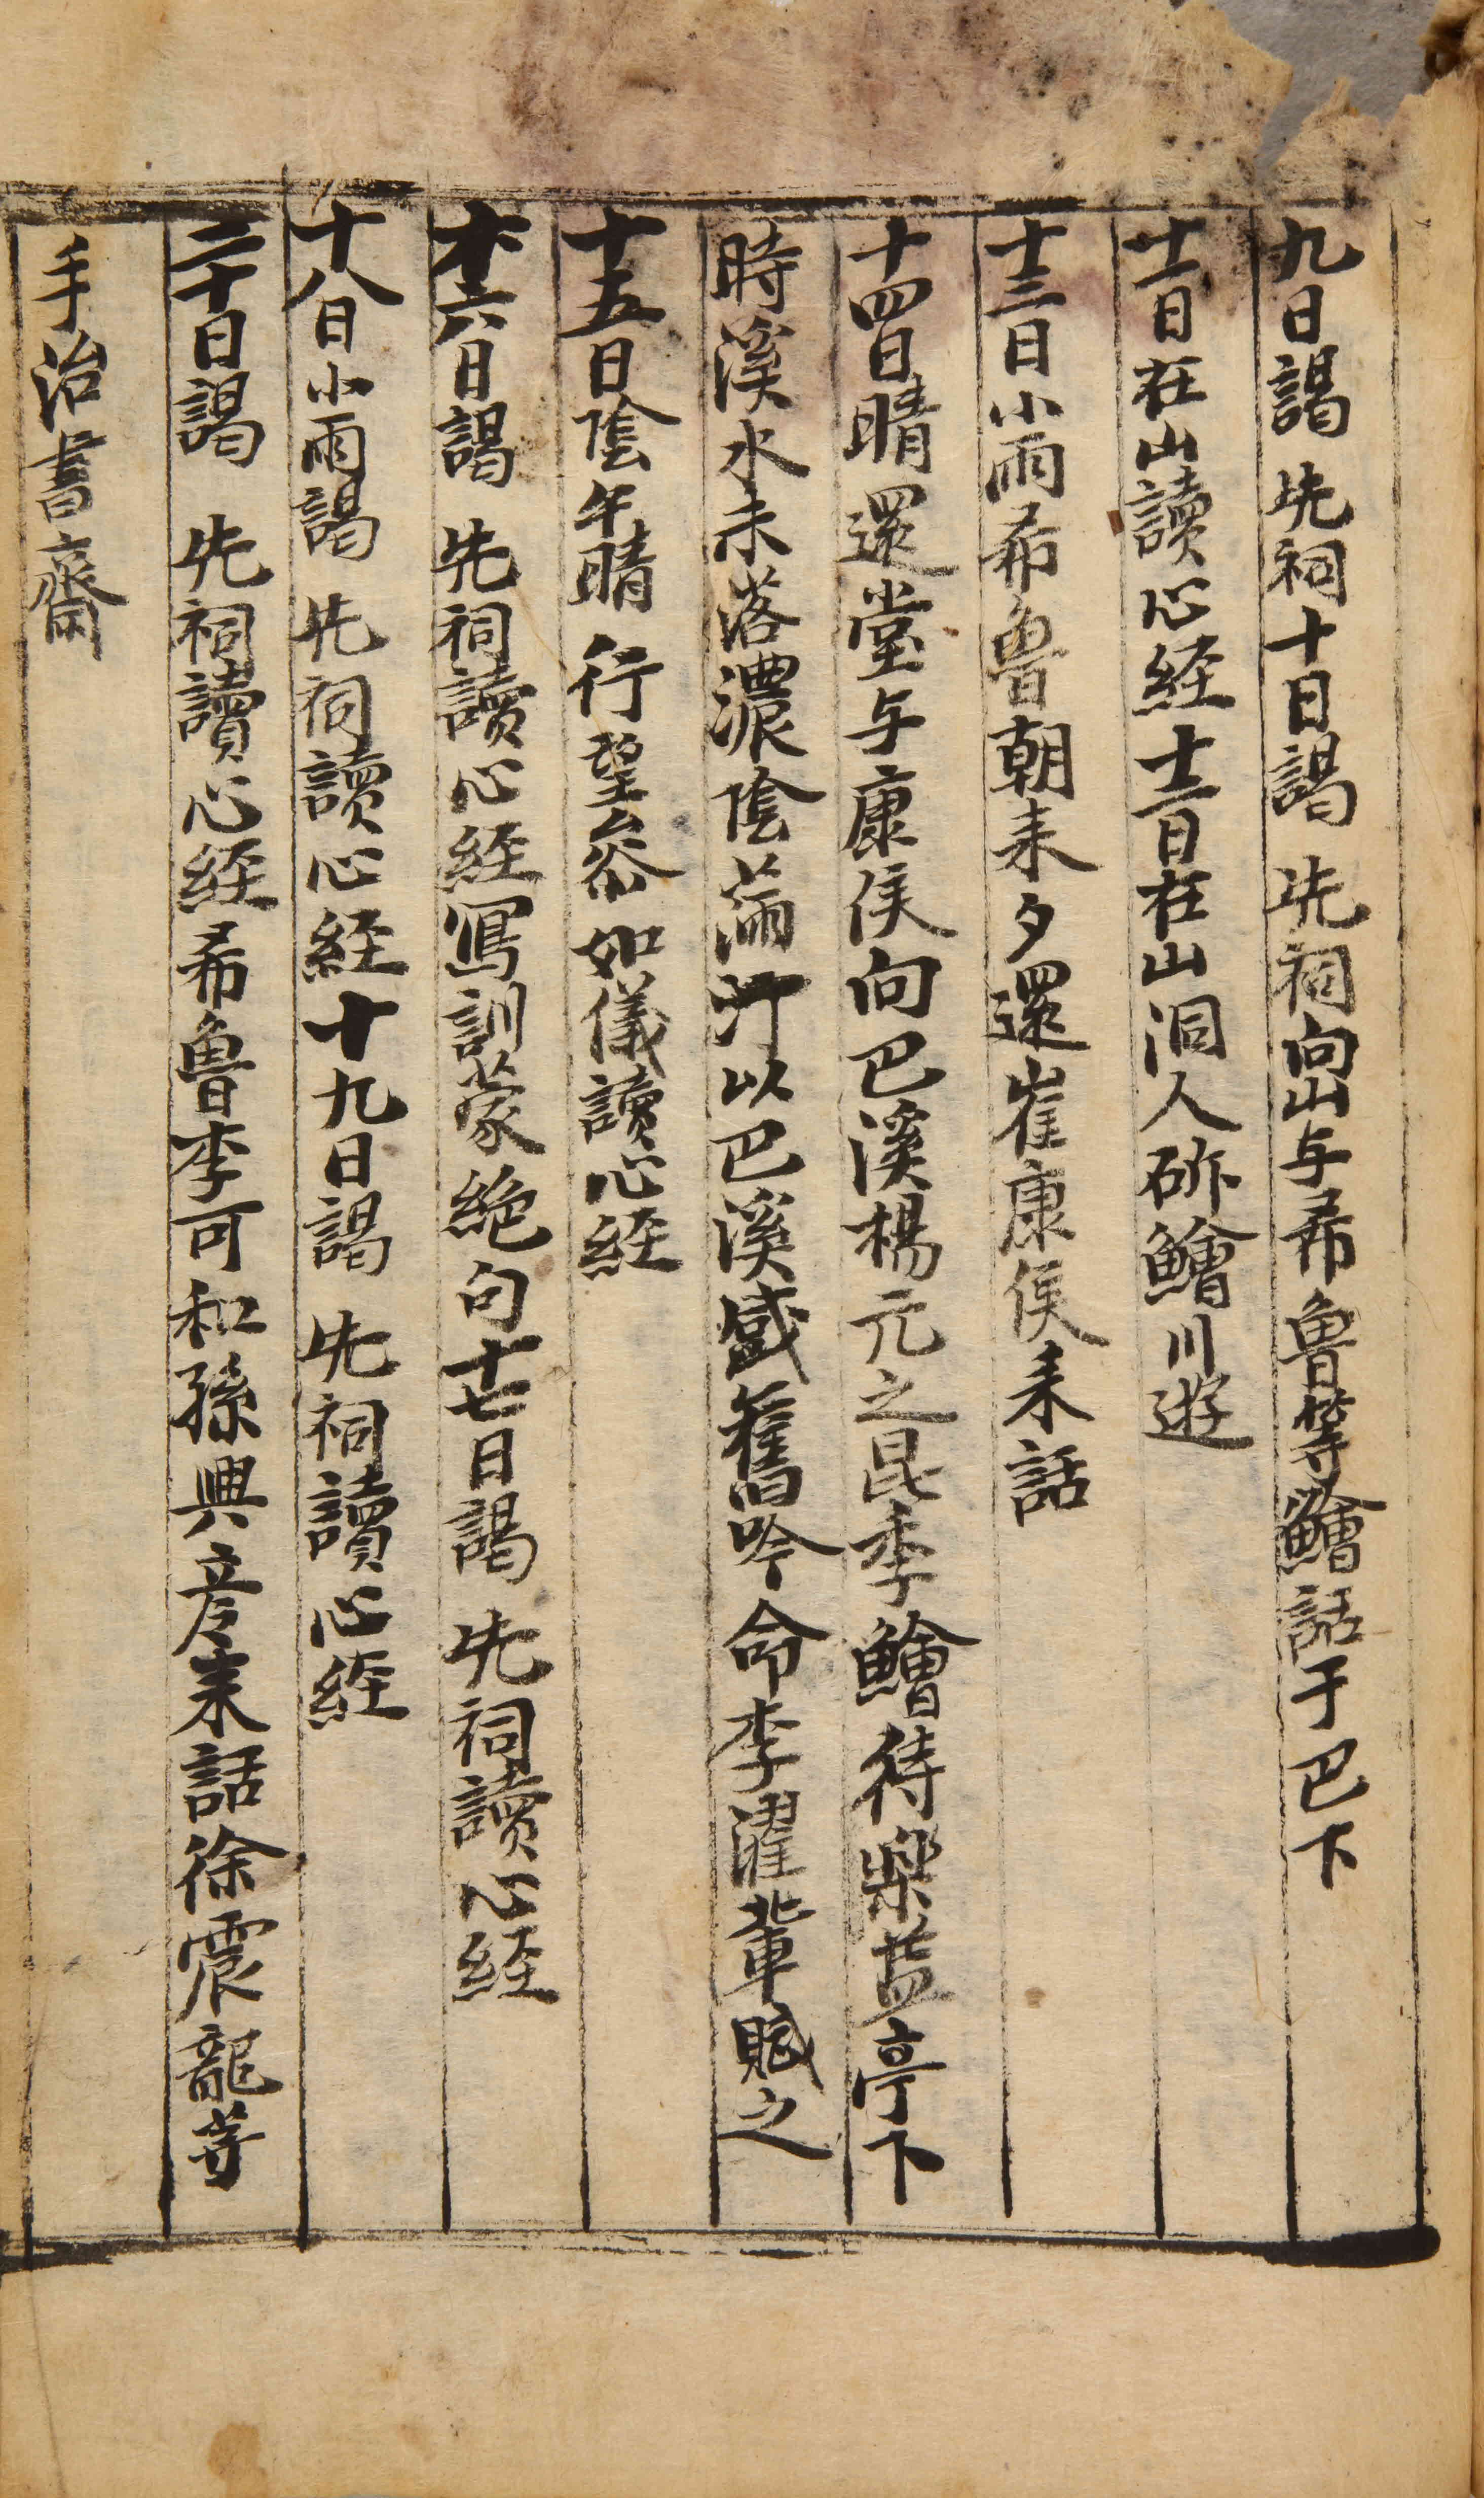 九日謁 先祠十日謁 先祠向山与希魯等鱠話于巴下
十一日在山讀心経十二日在山洞人斫鱠川遊
十三日小雨希魯朝来夕還崔康侯来話
十四日晴還堂与康侯向巴溪楊元之昆季鱠待樂益亭下
時溪水未落濃陰滿汀以巴溪感舊吟命李濯輩賦之
十五日陰午晴 行望叅如儀讀心経
十六日謁 先祠讀心経寫訓蒙絶句十七日謁 先祠讀心経
十八日小雨謁 先祠讀心経十九日謁 先祠讀心経
二十日謁 先祠讀心経希魯李可和孫興彦来話徐震龍等
手治書齋